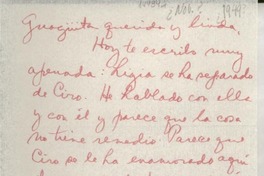 ¿ Nov. ? 1949
Guagüita querida y linda,
Hoy te escribo muy
apenada: Ligia se ha separado
de Ciro. He hablado con ella
y con él y parece que la cosa
no tiene remedio. Parece que
Ciro se le ha enamorado aquí